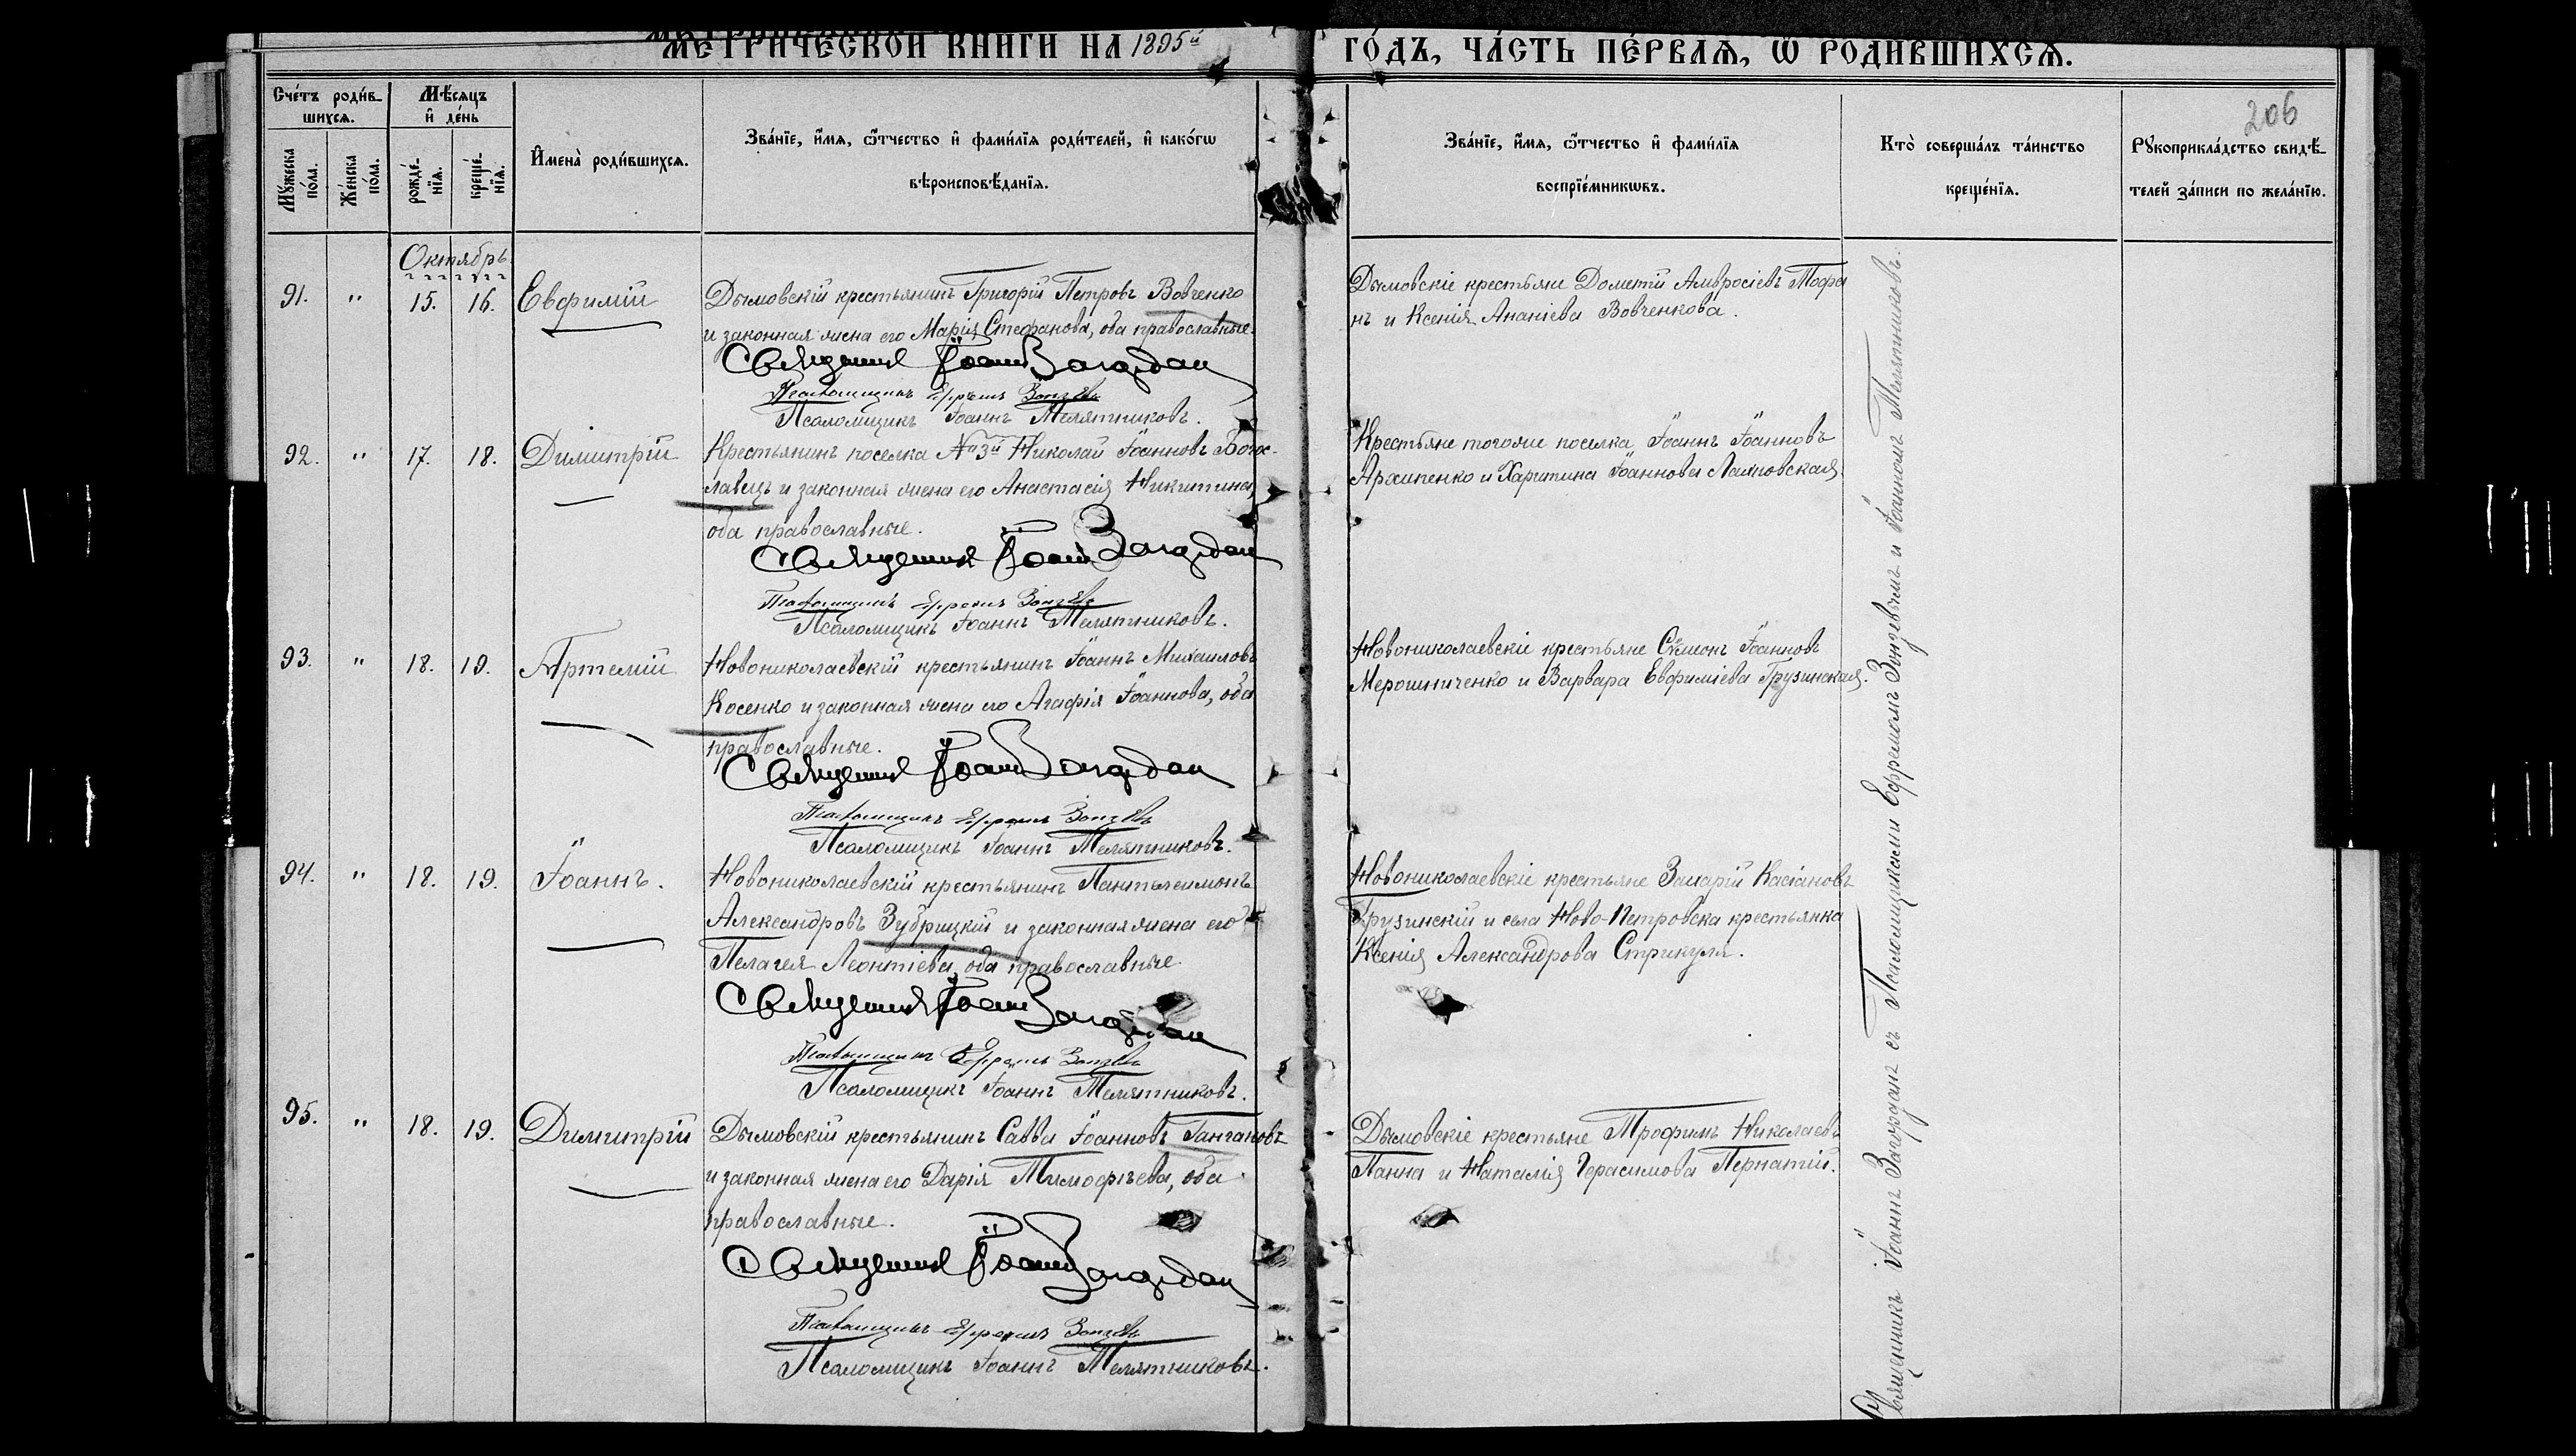 МЕТРИЧЕСКОЙ КНИГИ НА 1895й ГО́ДЪ, ЧА́СТЬ ПЕ́РВАѦ, Ѡ РОДИ́ВШИХСѦ.
206
Сче́тъ роди́в-
шихсѧ.
Мѣ́сѧцъ
и҆ де́нь
Мꙋ́жеска
по́ла.
Же́нска
по́ла.
рожде́-
нїѧ.
креще́-
нїѧ.
И҆мена̀ роди́вшихсѧ.
Зва́нїе, и҆́мѧ, ѻ҆́тчество и҆ фами́лїѧ роди́телей, и҆ како́гѡ
вѣроисповѣ́данїѧ.
Зва́нїе, и҆́мѧ, ѻ҆́тчество и҆ фами́лїѧ
воспрїе́мникѡвъ.
Кто̀ соверша́лъ та́инство
креще́нїѧ.
Рꙋкоприкла́дство свидѣ́-
телей за́писи по жела́нїю.
Октябрь.
91. " 15. 16. Евфимій
Дымовскій крестьянинъ Григорій Петровъ Вовченко
и законная жена его Марія Стефанова, оба православные.
Священникъ Іоаннъ Загордан
Псаломщикъ Ефремъ Зонзевъ
Псаломщикъ Іоаннъ Телятниковъ.
Дымовскіе крестьяне Дометій Амвросіевъ Тафа
нъ и Ксенія Ананіева Вовченкова.
92. " 17. 18. Димитрій
Крестьянинъ поселка № 3й Николай Іоанновъ Богос-
лавецъ и законная жена его Анастасія Никитина,
оба православные.
Священникъ Іоаннъ Загордан
Псаломщикъ Ефремъ Зонзевъ
Псаломщикъ Іоаннъ Телятниковъ.
Крестьяне тогоже поселка Іоаннъ Іоанновъ
Архипенко и Харитина Іоаннова
93. " 18. 19. Артемій
Новониколаевскій крестьянинъ Іоаннъ Михаиловъ
Косенко и законная жена его Агафія Іоаннова, оба
православные.
Священникъ Іоаннъ Загордан
Псаломщикъ Ефремъ Зонзевъ
Псаломщикъ Іоаннъ Телятниковъ.
Новониколаевскіе крестьяне Сѵмеонъ Іоанновъ
Мерошниченко и Варвара Евфиміева Грузинская.
94. " 18. 19. Іоаннъ.
Новониколаевскій крестьянинъ Пантелеимонъ
Александровъ Зубрицкій и законная жена его
Пелагея Леонтіева, оба православные
Священникъ Іоаннъ Загордан
Псаломщикъ Ефремъ Зонзевъ
Псаломщикъ Іоаннъ Телятниковъ.
Новониколаевскіе крестьяне Захарій Касіановъ
Грузинскій и села Ново-Петровска крестьянка
Ксенія Александрова Стрикуля.
95. " 18. 19. Димитрій
Дымовскій крестьянинъ Савва Іоанновъ Гангановъ
и законная жена его Дарія Тимофѣева, оба
православные.
Священникъ Іоаннъ Загордан
Псаломщикъ Ефремъ Зонзевъ
Псаломщикъ Іоаннъ Телятниковъ.
Дымовскіе крестьяне Трофимъ Николаевъ
Панна и Наталія Герасимова Пернатій.
Священникъ Іоаннъ Загорданъ съ Псаломщиками Ефремомъ Зонзевымъ и Іоанномъ Телятниковъ.